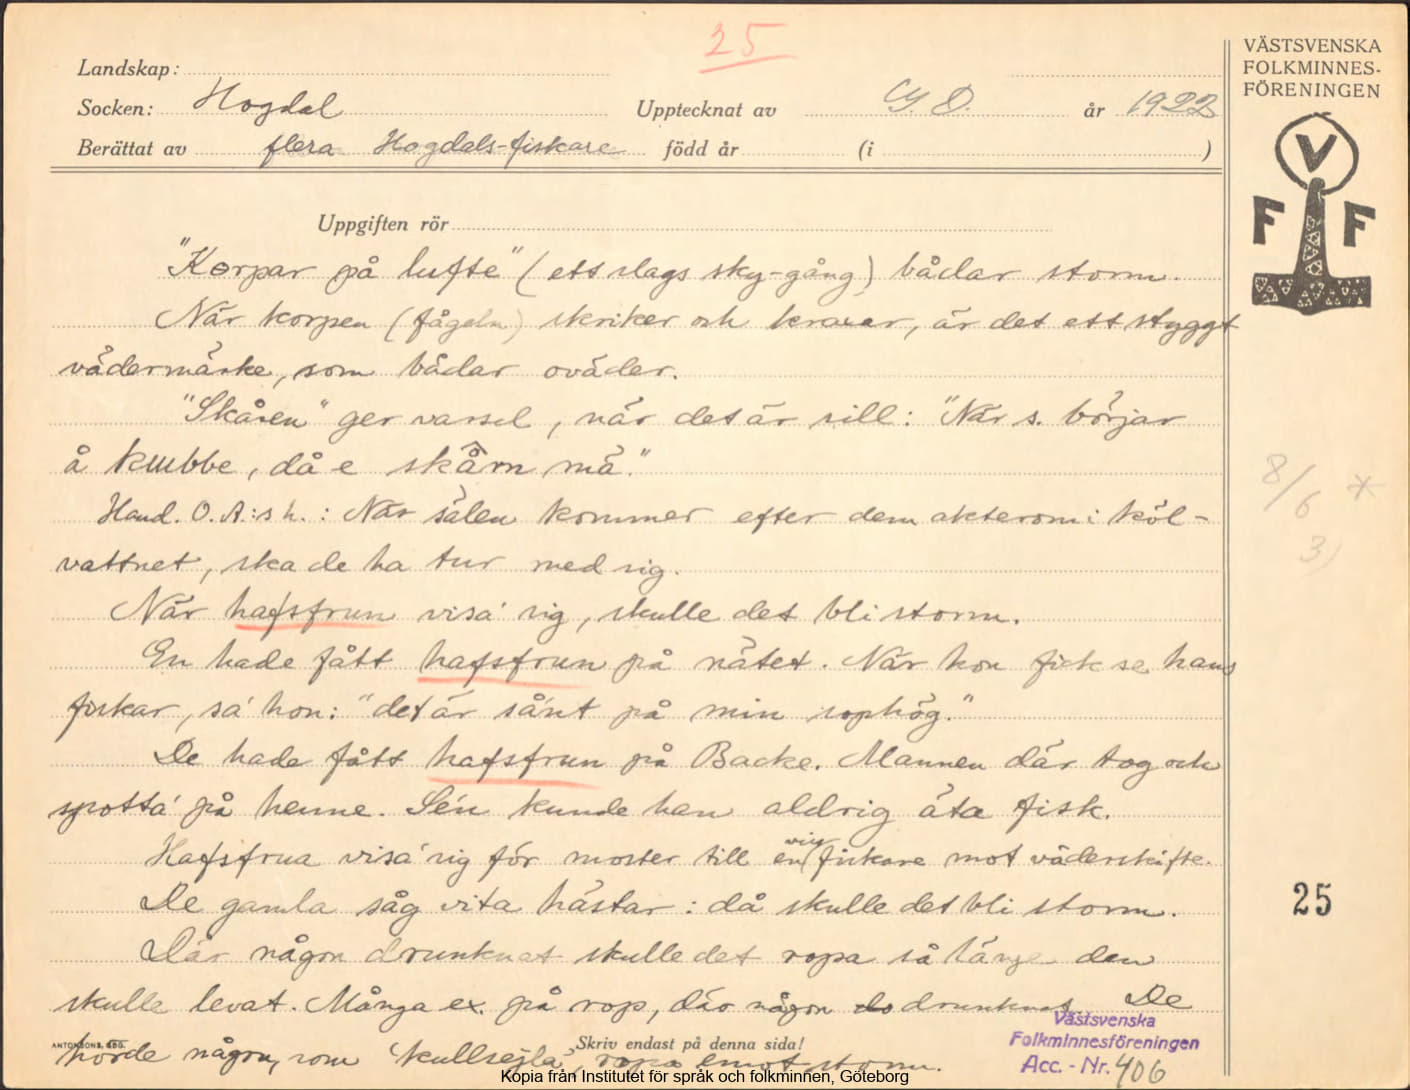 25
Landskap:
Socken: Hogdal Upptecknat av G. D. år 1922
Berättat av flera Hogdals-fiskare född år (i )
VÄSTSVENSKA
FOLKMINNES-
FÖRENINGEN
V
F F
Uppgiften rör
"Korpar på lufte" (ett slags sky-gång) bådar storm.
När korpen (fågeln) skriker och kraxar, är det ett styggt
vädermärke, som bådar oväder.
"Skåren" ger varsel, när det är sill: "När s. börjar
å klubbe, då e skårn mä."
Hand. O. A:s h.: När sälen kommer efter dem akterom i köl-
vattnet, ska de ha tur med sig.
När hafsfrun visa' sig, skulle det bli storm.
En hade fått hafsfrun på nätet. När hon fick se hans
fiskar, sa' hon: "det är sånt på min sophög."
De hade fått hafsfrun på Backe. Mannen där tog och
spotta' på henne. Se'n kunde han aldrig äta fisk.
Hafsfrua visa' sig för moster till en viss fiskare mot väderskifte.
De gamla såg vita hästar: då skulle det bli storm.
Där någon drunknat skulle det ropa så länge den
skulle levat. Många ex. på rop, där någon drunknat. De
hörde någon, som 'kullsejla', ropa emot storm.
8/6 *
3)
25
ANTONSONS, GBG.
Skriv endast på denna sida!
Västsvenska
Folkminnesföreningen
Acc. - Nr. 406
Kopia från Institutet för språk och folkminnen, Göteborg